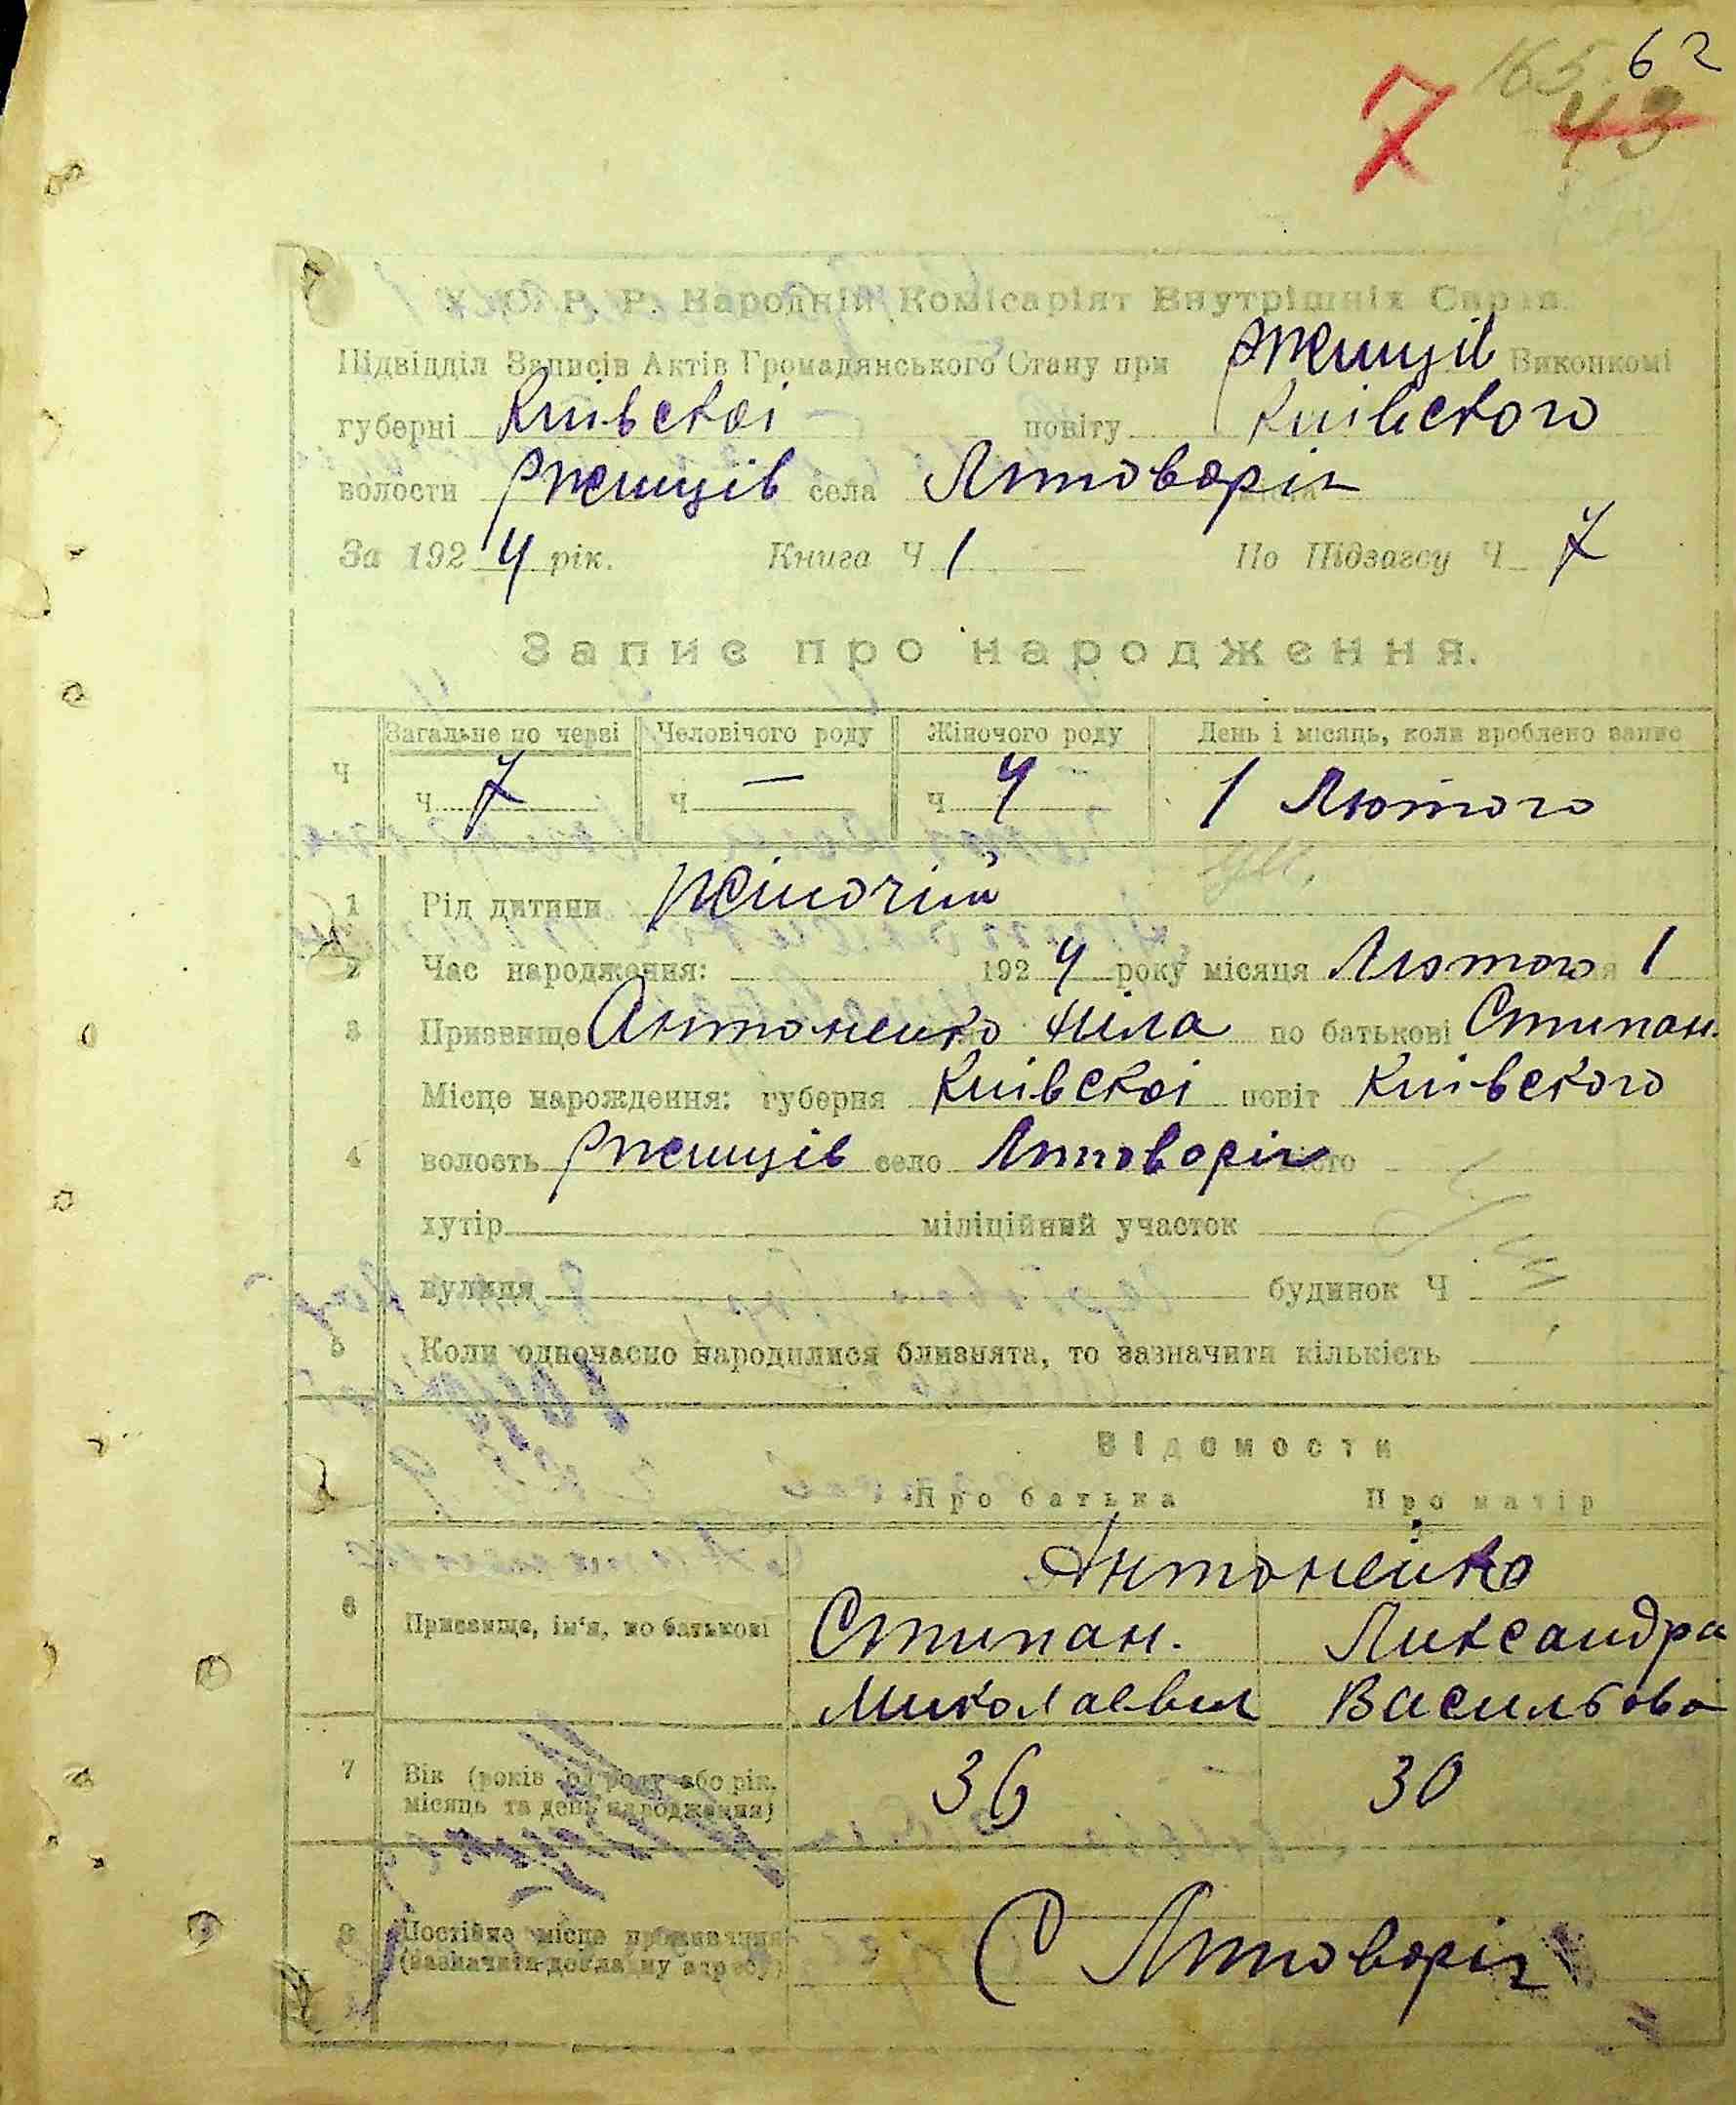 62
165
43
7
У. С. Р. Р. Народній Комісаріят Внутрішніх Справ.
Підвідділ Записів Актів Громадянського Стану при Ржищів Виконкомі
губерні Київскоі повіту Київского
волости Ржищів села Литоворіз
За 1924 рік. Книга Ч 1 По Підзагсу Ч 7
Запис про народження.
Загальне по черзі Человічого роду Жіночого роду День і місяць, коли зроблено запис
Ч Ч 7 Ч — Ч 4 1 Лютого
1 Рід дитини жіночий
2 Час народження: 1924 року місяця Лютого 1
3 Призвище Антоненко Ніла по батькові Стипан.
Місце народження: губерня Київскоі повіт Київского
4 волость Ржищів село місто
хутір міліційний участок
вулиця будинок Ч
5 Коли одночасно народилися близнята, то зазначити кількість
Відомости
Про батька Про матір
Антоненко
6 Призвище, ім'я, по батькові Стипан. Ликсандра
Миколаевич Васильова
7 Вік (років од роду або рік, 36 30
місяць та день народження)
8 Постійне місце проживання
(зазначити докладну адресу)